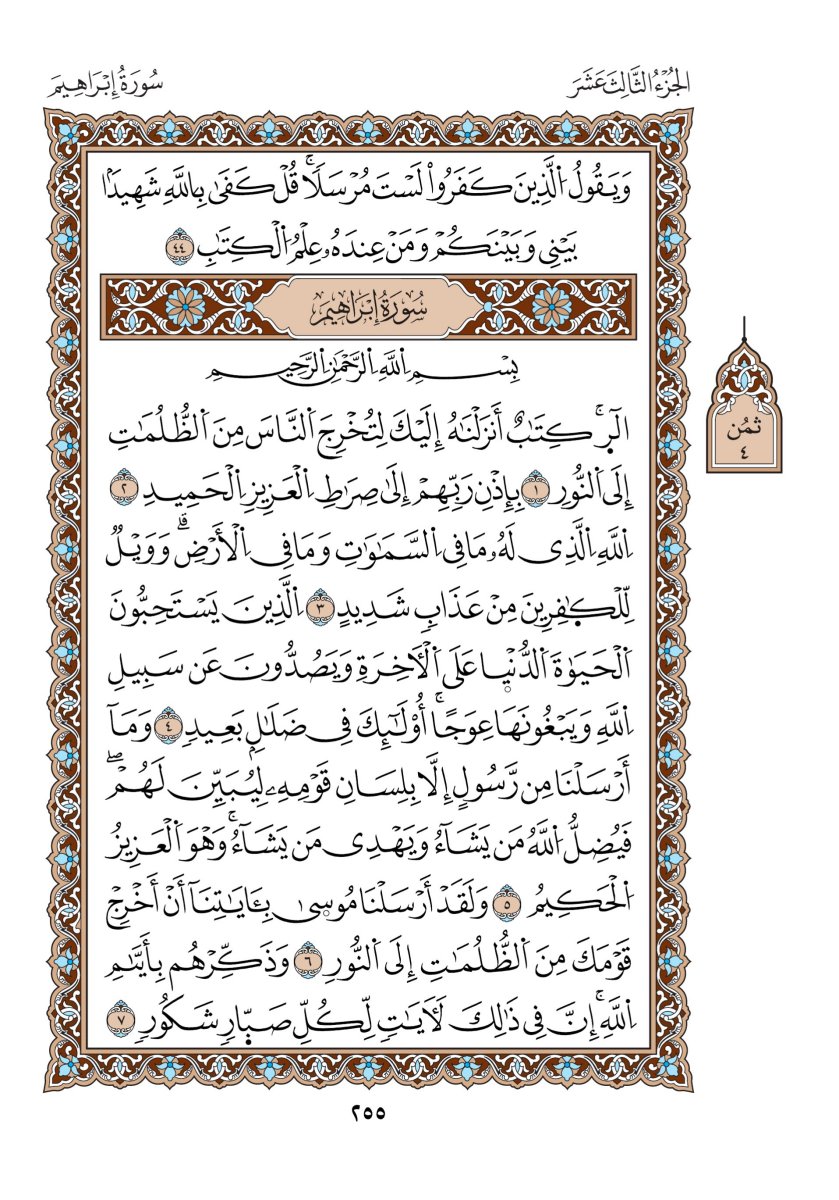 الجُزْءُ الثَّالِثَ عَشَرَ
سُورَةُ إِبْرَاهِيمَ
وَيَقُولُ اُ۬لَّذِينَ كَفَرُواْ لَسْتَ مُرْسَلاًۚ قُلْ كَفَىٰ بِاللَّهِ شَهِيدَۢا
بَيْنِي وَبَيْنَكُمْ وَمَنْ عِندَهُۥ عِلْمُ اُ۬لْكِتَٰبِ ٤٤
سُورَةُ إِبْرَاهِيمَ
بِسْمِ اِ۬للَّهِ اِ۬لرَّحْمَٰنِ اِ۬لرَّحِيمِ
أَلَٓرۚ كِتَٰبٌ أَنزَلْنَٰهُ إِلَيْكَ لِتُخْرِجَ اَ۬لنَّاسَ مِنَ اَ۬لظُّلُمَٰتِ
إِلَى اَ۬لنُّورِ ١ بِإِذْنِ رَبِّهِمْ إِلَىٰ صِرَٰطِ اِ۬لْعَزِيزِ اِ۬لْحَمِيدِ ٢
اِ۬للَّهِ اِ۬لَّذِي لَهُۥ مَا فِي اِ۬لسَّمَٰوَٰتِ وَمَا فِي اِ۬لْأَرْضِۗ وَوَيْلٌ
لِّلْكٰ۪فِرِينَ مِنْ عَذَابٍ شَدِيدٍ ٣ اِ۬لَّذِينَ يَسْتَحِبُّونَ
اَ۬لْحَيَوٰةَ اَ۬لدُّنْي۪ا عَلَى اَ۬لْأٓخِرَةِ وَيَصُدُّونَ عَن سَبِيلِ
اِ۬للَّهِ وَيَبْغُونَهَا عِوَجًاۚ أُوْلَٰٓئِكَ فِي ضَلَٰلِۢ بَعِيدٍ ٤ وَمَآ
أَرْسَلْنَا مِن رَّسُولٍ إِلَّا بِلِسَانِ قَوْمِهِۦ لِيُبَيِّنَ لَهُمْۖ
فَيُضِلُّ اُ۬للَّهُ مَن يَشَآءُ وَيَهْدِي مَن يَشَآءُۚ وَهْوَ اَ۬لْعَزِيزُ
اُ۬لْحَكِيمُ ٥ وَلَقَدْ أَرْسَلْنَا مُوس۪ىٰ بِـَٔايَٰتِنَآ أَنْ أَخْرِجْ
قَوْمَكَ مِنَ اَ۬لظُّلُمَٰتِ إِلَى اَ۬لنُّورِ ٦ وَذَكِّرْهُم بِأَيَّىٰمِ
اِ۬للَّهِۚ إِنَّ فِي ذَٰلِكَ لَأٓيَٰتٍ لِّكُلِّ صَبّ۪ارٍ شَكُورٍ ٧
ثمُن
٤
٢٥٥